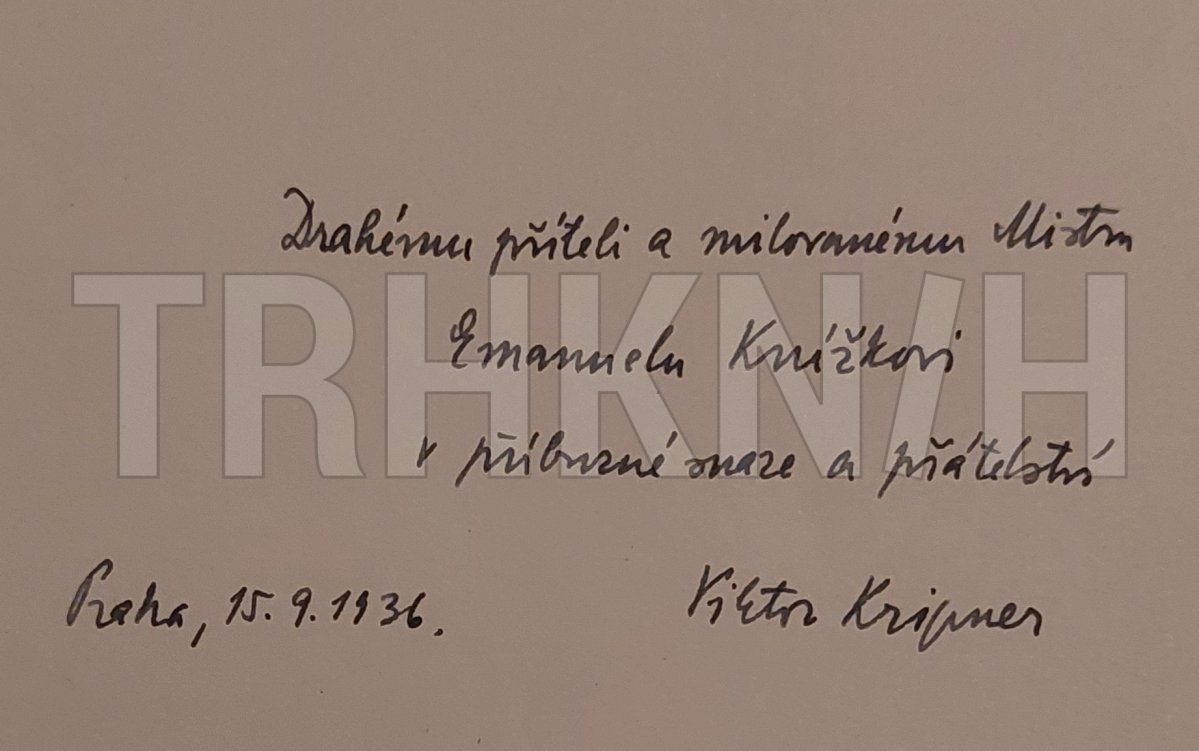 Drahému příteli a milovanému Mistru
TRHKN/H
Emanuelu Knížkovi
v příbuzné snaze a přátelství
Praha, 15. 9. 1936.
Viktor Kripner